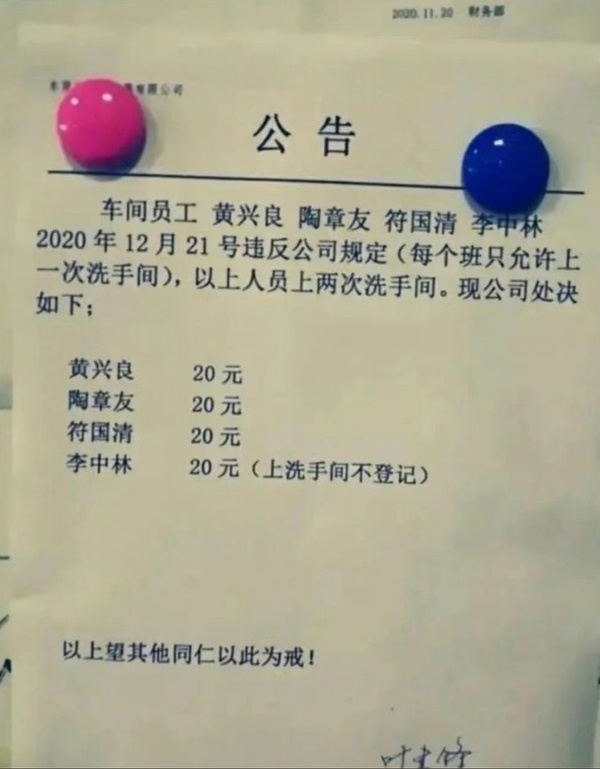 2020.11.20 财务部
有限公司
公 告
车间员工 黄兴良 陶章友 符国清 李中林
2020 年 12 月 21 号违反公司规定（每个班只允许上
一次洗手间），以上人员上两次洗手间。现公司处决
如下；
黄兴良 20 元
陶章友 20 元
符国清 20 元
李中林 20 元（上洗手间不登记）
以上望其他同仁以此为戒！